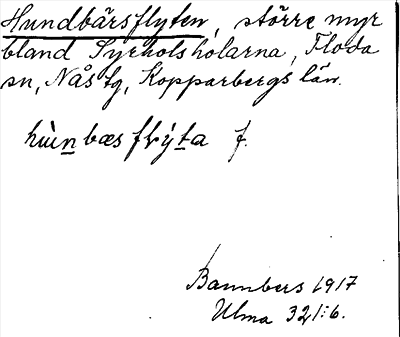 Hundbärsflyten, större myr
bland Syrholsholarna, Floda
sn, Nås tg, Kopparbergs län.
hùnbæsflýta f.
Bannbers 1917
Ulma 321:6.